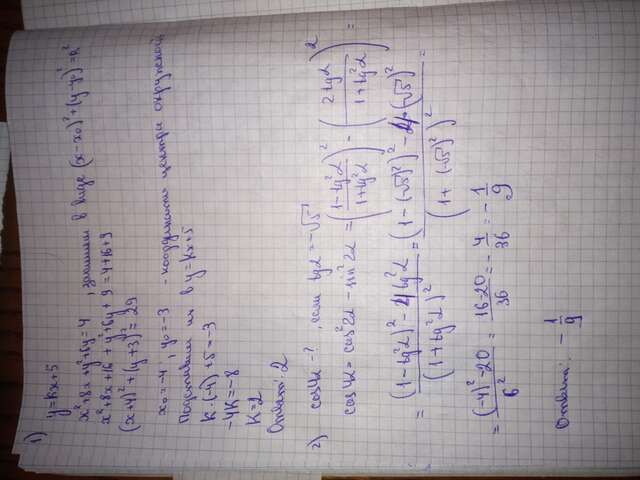 1) y=kx+5
x²+8x+y²+6y=4, запишем в виде (x-x₀)²+(y-y₀)²=R²
x²+8x+16+y²+6y+9=4+16+9
(x+4)²+(y+3)²=29
x₀=-4, y₀=-3 - координаты центра окружности,
Подставим их в y=kx+5
k·(-4)+5=-3
-4k=-8
k=2
Ответ: 2
2) cos4α-?, если tgα=-√5
cos4α=cos²2α-sin²2α=((1-tg²α)/(1+tg²α))²-(2tgα/(1+tg²α))²=
=((1-tg²α)²-4tg²α)/(1+tg²α)²=((1-(√5)²)²-4·(√5)²)/(1+(√5)²)²=
=((-4)²-20)/6²=(16-20)/36=-4/36=-1/9
Ответ: -1/9